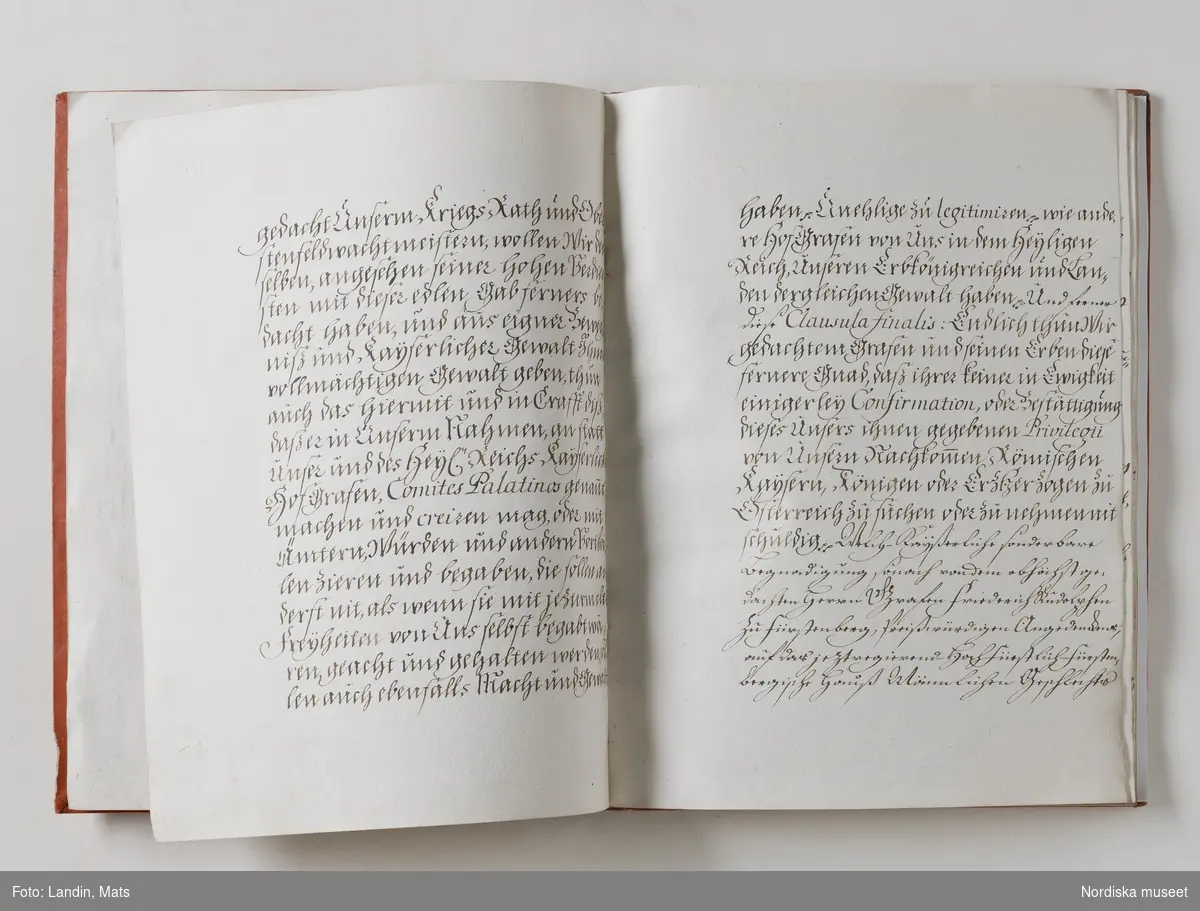 gedacht Unserm Kriegs Rath und Obri
stenfeldwachtmeistern, wollen Wir de
selben, angesehen seiner hohen Verdin
sten mit dieser edlen Gab ferners be
dacht haben, und aus eigner Beweg
niß und Kayserlicher Gewalt Ihm
vollmächtigen Gewalt geben, thun
auch das hiermit und in Crafft diß,
daß er in Unserm Nahmen, an statt
Unser und des Heyl. Reichs Kayserlich
Hof Grafen, Comites Palatinos genant
machen und creiren mag, oder mit
Ämtern, Würden und andern Vorthe
len zieren und begaben, die sollen an
derst nit, als wenn sie mit jezurmelte
Freyheiten von Uns selbst begabt wä
ren, geacht und gehalten werden, sol
len auch ebenfalls Macht und Gewalt
haben, Unehlige zu legitimiren, wie ande
re Hof Grafen von Uns in dem Heyligen
Reich, Unseren Erbkönigreichen und Lan-
den dergleichen Gewalt haben. Und ferner
diese Clausula finalis: Endlich thun Wir
gedachtem Grafen und seinen Erben diese
fernere Gnad, daß ihrer keiner in Ewigkeit
einigerley Confirmation, oder Bestättigung
dieses Unsers ihnen gegebenen Privilegii
von Unsern Nachkom̄en, Römischen
Kaysern, Königen oder Ertzherzogen zu
Österreich zu suchen oder zu nehmen nit
schuldig. Welch-Kayßerliche sonderbare
Begnadigung sonach von dem obhöchst ge-
dachten Herrn Grafen Friederich Rudolphen
zu Fürstenberg, Preißwürdigen Angedenckens,
auf das jeztregierend Hoch Fürstlich Fürsten-
bergische Hauß Männlichen Geschlechts
Foto: Landin, Mats
Nordiska museet